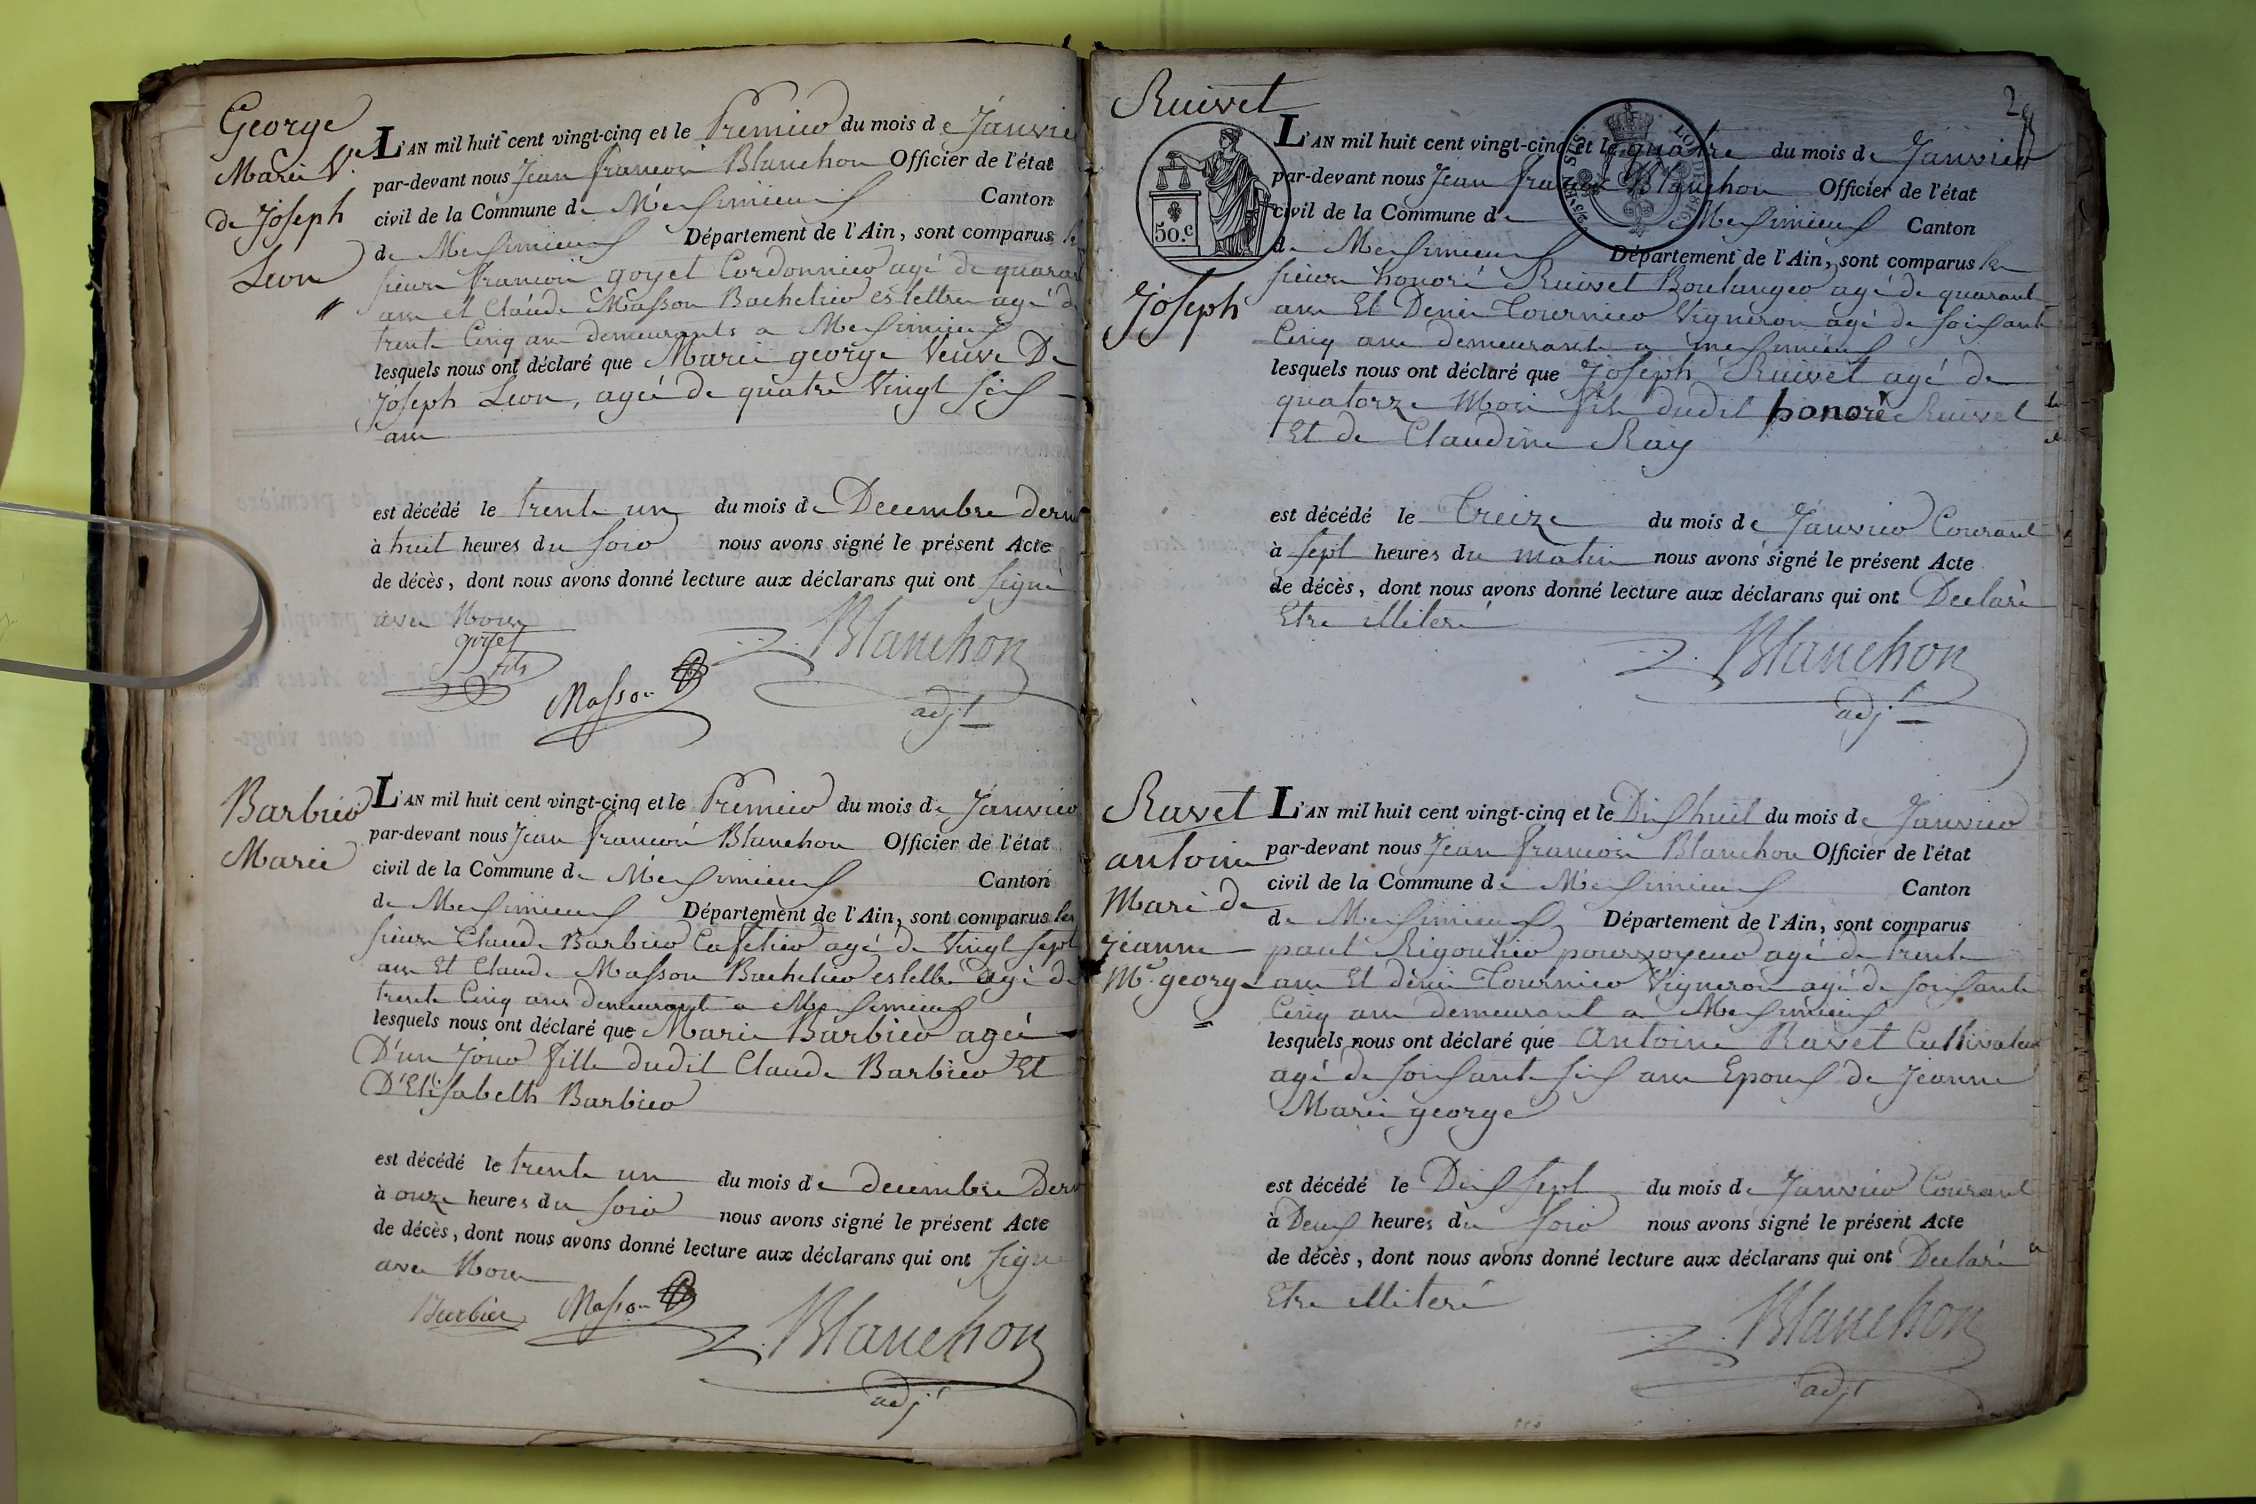 George
Marie Ve
de Joseph
Leon
L'AN mil huit cent vingt-cinq et le Premier du mois de Janvie
par-devant nous Jean francois Blanchon Officier de l'état
civil de la Commune de Meximieux Canton
de Meximieux Département de l'Ain, sont comparus
sieurs francois goyet Cordonnier agé de quaran
ans et Claude Masson Bachelier es lettres agé d
trente Cinq ans demeurants a Meximieux
lesquels nous ont déclaré que Marie george Veuve De
Joseph Leon, agée de quatre Vingt six
ans
est décédé le trente un du mois de Decembre dern
à huit heures du soir nous avons signé le présent Acte
de décès, dont nous avons donné lecture aux déclarans qui ont signé
avec Nous
goyet
fils
Masson
Blanchon
adjt
Barbier
Marie
L'AN mil huit cent vingt-cinq et le Premier du mois de Janvier
par-devant nous Jean francois Blanchon Officier de l'état
civil de la Commune de Meximieux Canton
de Meximieux Département de l'Ain, sont comparus les
sieurs Claude Barbier Cafetier agé de Vingt sept
ans Et Claude Masson Bachelier es lettre agé de
trente Cinq ans demeurant a Meximieux
lesquels nous ont déclaré que Marie Barbier agée
D'un Jour fille dudit Claude Barbier Et
D'Elisabeth Barbier
est décédé le trente un du mois de decembre Dern
à onze heures du soir nous avons signé le présent Acte
de décès, dont nous avons donné lecture aux déclarans qui ont signé
avec Nous
Barbier Masson
Blanchon
adjt
Ruivet
Joseph
50.c
L'AN mil huit cent vingt-cinq et le quatre du mois de Janvier
par-devant nous Jean francois Blanchon Officier de l'état
civil de la Commune de Meximieux Canton
de Meximieux Département de l'Ain, sont comparus les
sieurs honoré Ruivet Boulanger agé de quarante
ans Et Denis Tournier Vigneron agé de soixante
Cinq ans demeurants a meximieux
lesquels nous ont déclaré que Joseph Ruivet agé de
quatorze Mois fils dudit honoré Ruivet
Et de Claudine Ray
est décédé le Treize du mois de Janvier Courant
à sept heures du matin nous avons signé le présent Acte
de décès, dont nous avons donné lecture aux déclarans qui ont Declaré
Etre illiteré
Blanchon
adjt
Ravet
antoine
Mari de
jeanne
Me george
L'AN mil huit cent vingt-cinq et le Dix huit du mois de Janvier
par-devant nous Jean francois Blanchon Officier de l'état
civil de la Commune de Meximieux Canton
de Meximieux Département de l'Ain, sont comparus
paul Rigoutier pourvoyeur agé de trente
ans Et dénis Tournier Vigneron agé de soixante
Cinq ans demeurant a Meximieux
lesquels nous ont déclaré que Antoine Ravet Cultivateur
agé de soixante six ans Epoux de Jeanne
Marie george
est décédé le Dix sept du mois de Janvier Courant
à Deux heures du soir nous avons signé le présent Acte
de décès, dont nous avons donné lecture aux déclarans qui ont Declaré
Etre illiteré
Blanchon
adjt